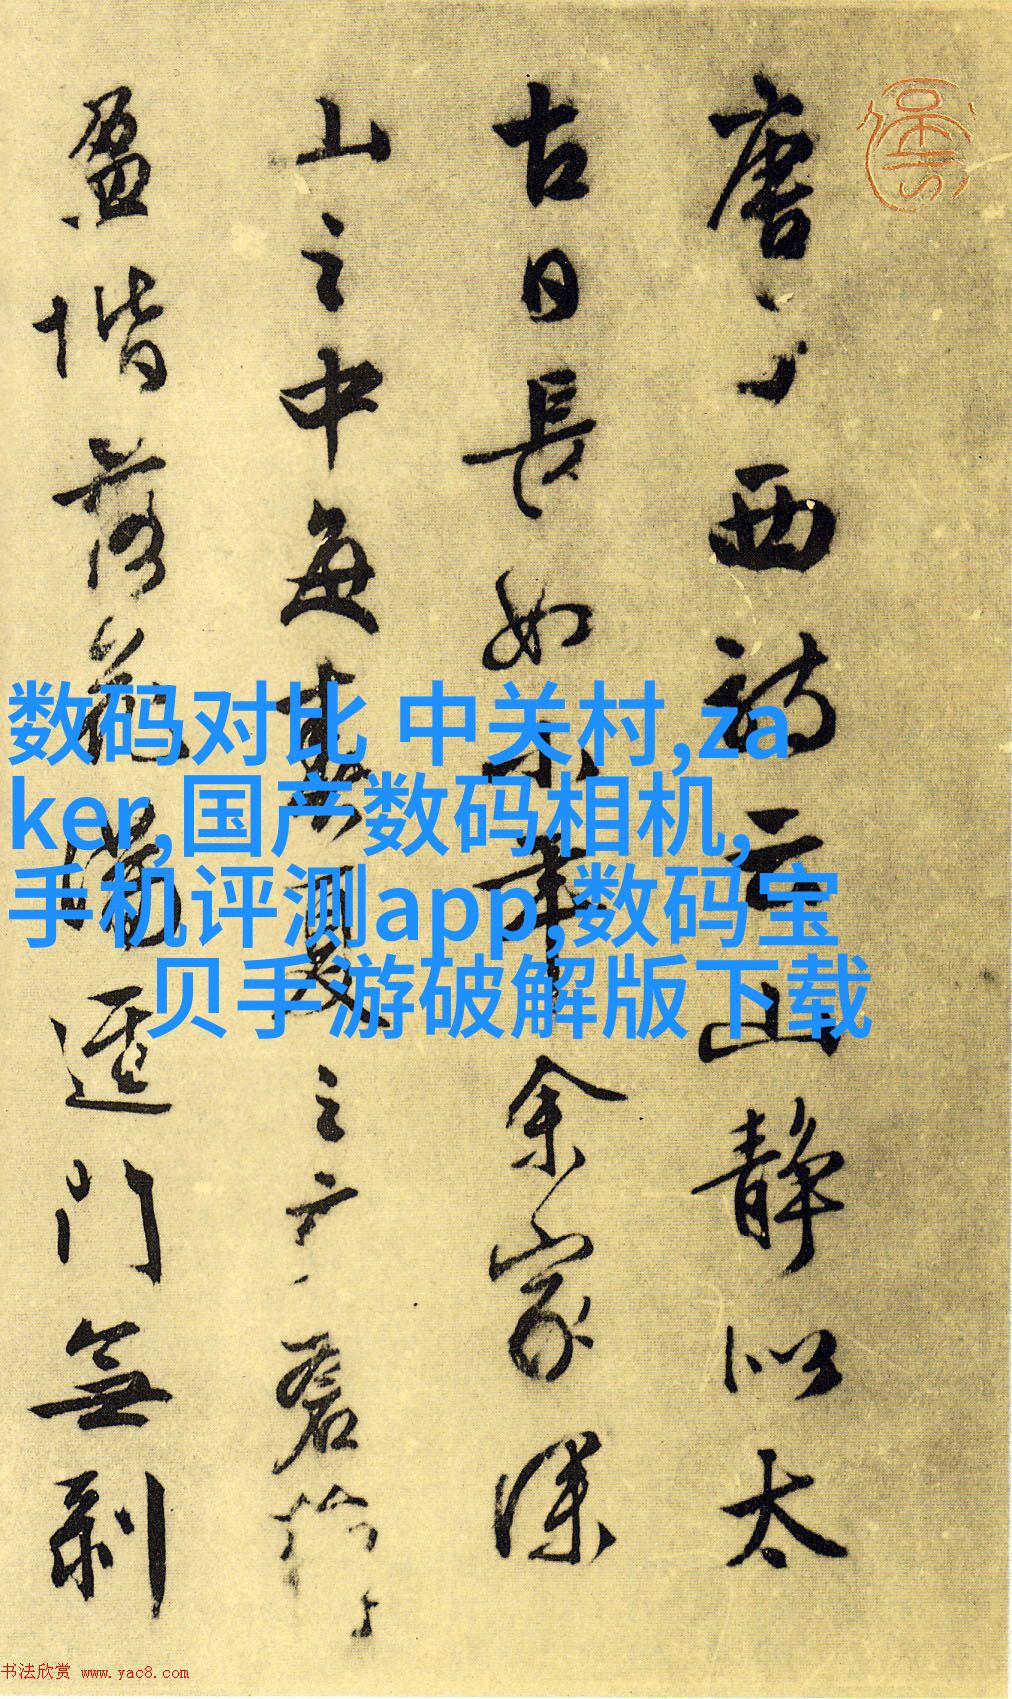 唐子西詩云山静似太
古日長如小年余家深
山之中每春夏之交蒼蘚
盈堦落花滿逕門無剥
数码对比 中关村,za
ker,国产数码相机,
手机评测app,数码宝
贝手游破解版下载
书法欣赏 www.yac8.com